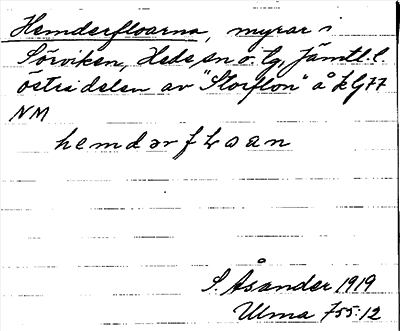 Hemderfloarna, myrar i
Sörviken, Hede sn o. tg, Jämtl. l.
östsidelen av "Storflon" å kG 77
NM
hemdərfɫoan
S. Åsander 1919
Ulma 755:12